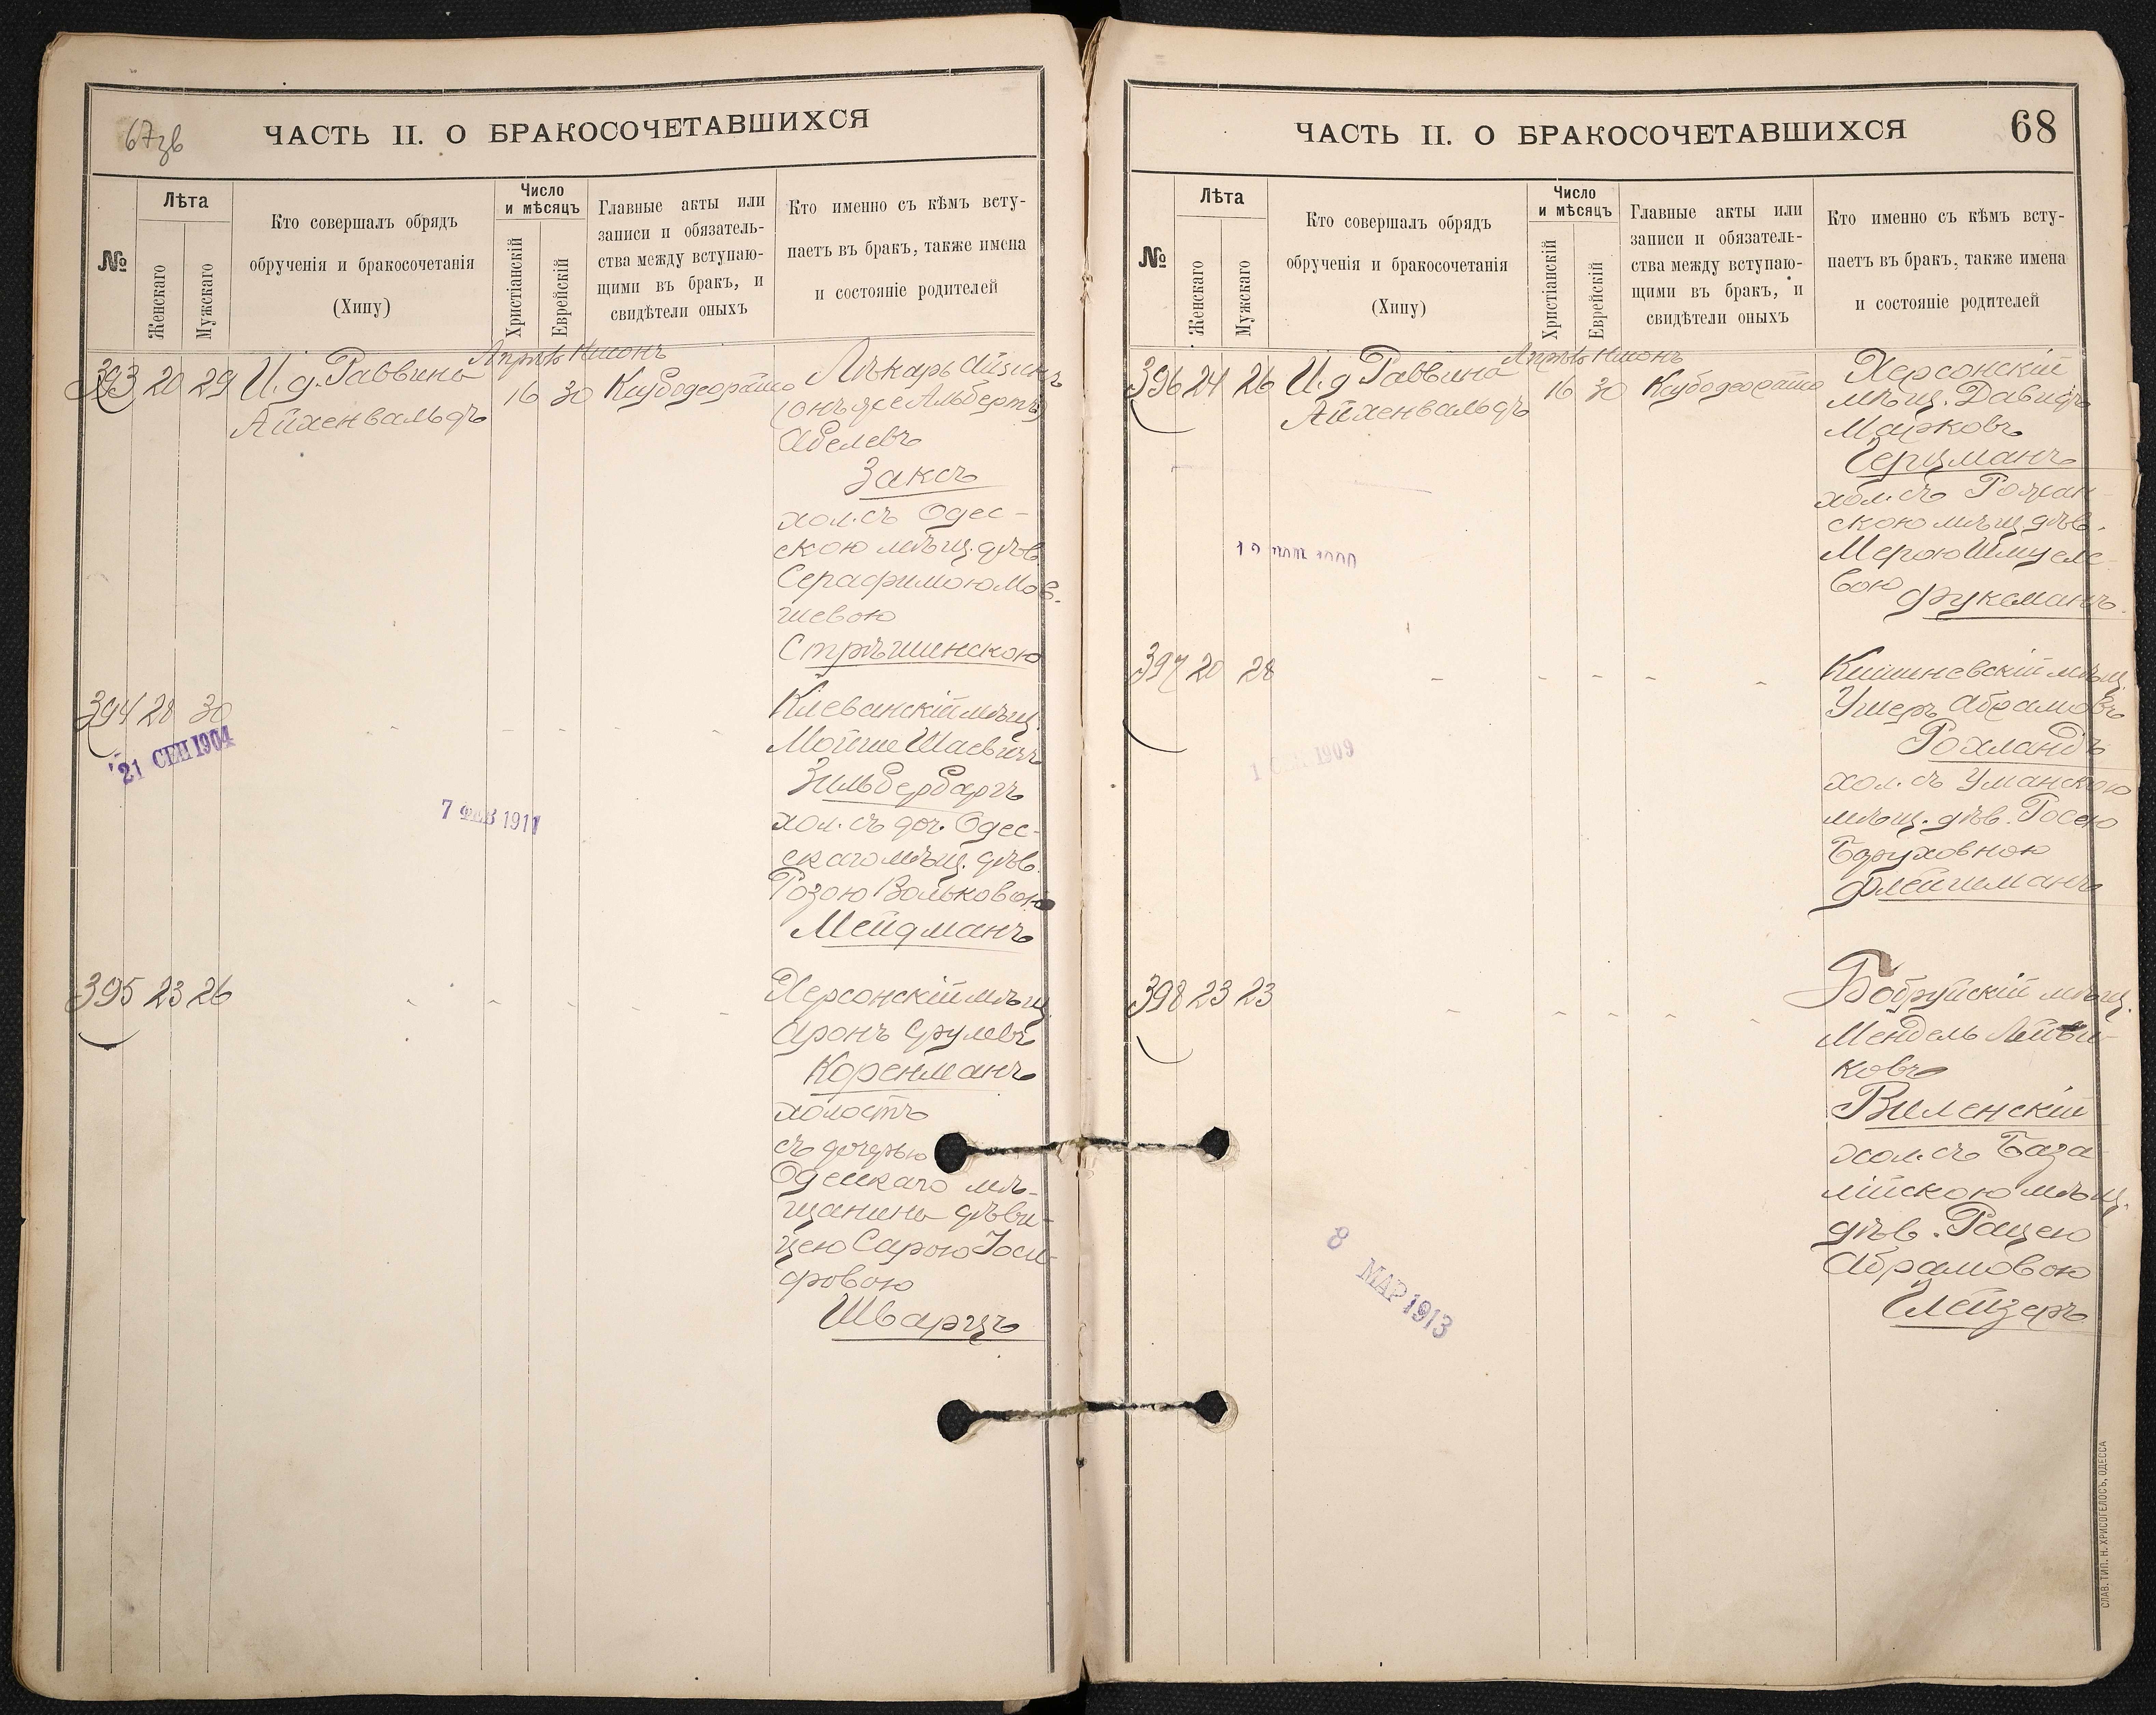 67зв
ЧАСТЬ II. О БРАКОСОЧЕТАВШИХСЯ
№
Лѣта
Женскаго
Мужскаго
Кто совершалъ обрядъ
обрученія и бракосочетанія
(Хипу)
Число
и мѣсяцъ
Христіанскій
Еврейскій
Главные акты или
записи и обязатель-
ства между вступаю-
щими въ бракъ, и
свидѣтели оныхъ
Кто именно съ кѣмъ всту-
паетъ въ бракъ, также имена
и состояніе родителей
393 20 29 И. д. Раввина
Айхенвальдъ
16 30
Лѣкарь Айзикъ
(онъ же Альбертъ)
Абелевъ
Заксъ
хол. съ Одес-
скою мѣщ. дѣв.
Серафимою Мов-
шевою
Стрѣшинскою
394 28 30
21 СЕН 1904
7 ФЕВ 1911
Клеванскій мѣщ.
Мойше Шаевичъ
Зильбербаргъ
хол. съ доч. Одес-
скаго мѣщ. дѣв.
Розою Вольковою
Мейдманъ
395 23 26
Херсонскій мѣщ.
Аронъ Срулевъ
Коренманъ
холостъ
съ дочерью
Одесскаго мѣ-
щанина дѣви-
цею Сарою Іоси-
фовою
Шварцъ
ЧАСТЬ II. О БРАКОСОЧЕТАВШИХСЯ
68
№
Лѣта
Женскаго
Мужскаго
Кто совершалъ обрядъ
обрученія и бракосочетанія
(Хипу)
Число
и мѣсяцъ
Христіанскій
Еврейскій
Главные акты или
записи и обязатель-
ства между вступаю-
щими въ бракъ, и
свидѣтели оныхъ
Кто именно съ кѣмъ всту-
паетъ въ бракъ, также имена
и состояніе родителей
396 24 26 И. д Раввина
Айхенвальдъ
16 30
Херсонскій
мѣщ. Давидъ
Марковъ
Герцманъ
хол. съ Рашан-
скою мѣщ. дѣв.
Мерою Шмуеле-
вою Фуксманъ.
397 20 28
1909
Кишиневскій мѣщ.
Ушеръ Абрамовъ
Рохландъ
хол. съ Уманскою
мѣщ. дѣв. Росею
Баруховною
Флейшманъ
398 23 23
8 МАР 1913
Бобруйскій мѣщ.
Мендель
ковъ
Виленскій
хол. съ База
лійскою мѣщ.
дѣв. Рацею
Абрамовою
Глейзеръ
СЛАВ. ТИП. Н. ХРИСОГЕЛОСЪ, ОДЕССА